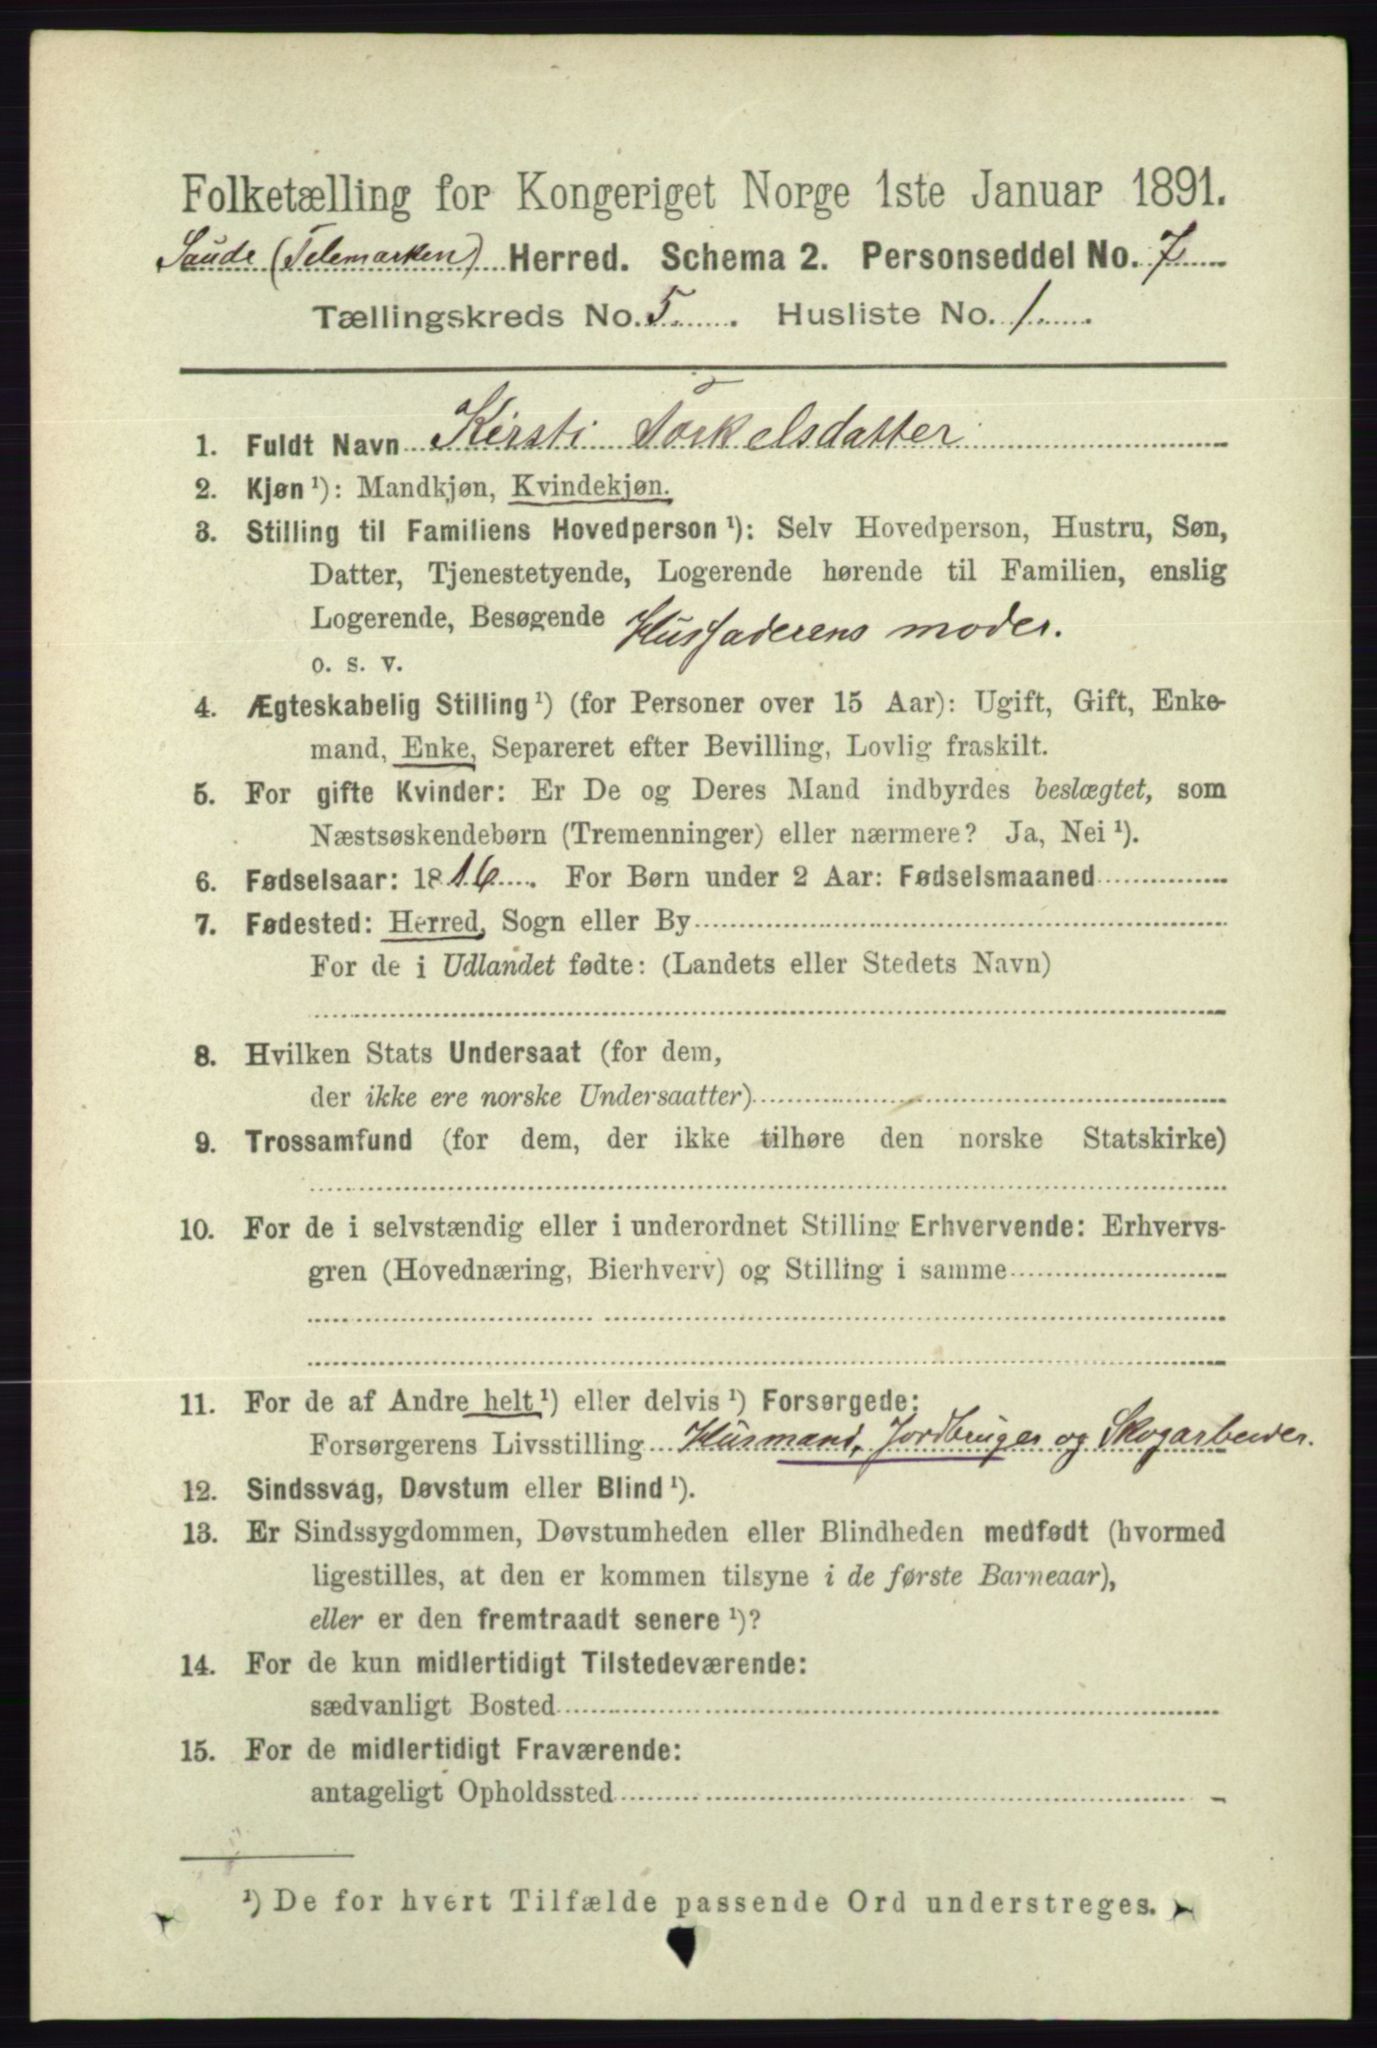 Folketælling for Kongeriget Norge 1ste Januar 1891.
Saude (Telemarken) Herred. Schema 2. Personseddel No. 7
Tællingskreds No. 5. Husliste No. 1
1. Fuldt Navn Kirsti Torkelsdatter
2. Kjøn ¹): Mandkjøn, Kvindekjøn.
3. Stilling til Familiens Hovedperson ¹): Selv Hovedperson, Hustru, Søn,
Datter, Tjenestetyende, Logerende hørende til Familien, enslig
Logerende, Besøgende Husfaderens moder.
o. s. v.
4. Ægteskabelig Stilling ¹) (for Personer over 15 Aar): Ugift, Gift, Enke-
mand, Enke, Separeret efter Bevilling, Lovlig fraskilt.
5. For gifte Kvinder: Er De og Deres Mand indbyrdes beslægtet, som
Næstsøskendebørn (Tremenninger) eller nærmere? Ja, Nei ¹).
6. Fødselsaar: 1816. For Børn under 2 Aar: Fødselsmaaned
7. Fødested: Herred, Sogn eller By
For de i Udlandet fødte: (Landets eller Stedets Navn)
8. Hvilken Stats Undersaat (for dem,
der ikke ere norske Undersaatter)
9. Trossamfund (for dem, der ikke tilhøre den norske Statskirke)
10. For de i selvstændig eller i underordnet Stilling Erhvervende: Erhvervs-
gren (Hovednæring, Bierhverv) og Stilling i samme
11. For de af Andre helt ¹) eller delvis ¹) Forsørgede:
Forsørgerens Livsstilling Husmand, Jordbruger og Skogarbeider.
12. Sindssvag, Døvstum eller Blind ¹).
13. Er Sindssygdommen, Døvstumheden eller Blindheden medfødt (hvormed
ligestilles, at den er kommen tilsyne i de første Barneaar),
eller er den fremtraadt senere ¹)?
14. For de kun midlertidigt Tilstedeværende:
sædvanligt Bosted
15. For de midlertidigt Fraværende:
antageligt Opholdssted
¹) De for hvert Tilfælde passende Ord understreges.